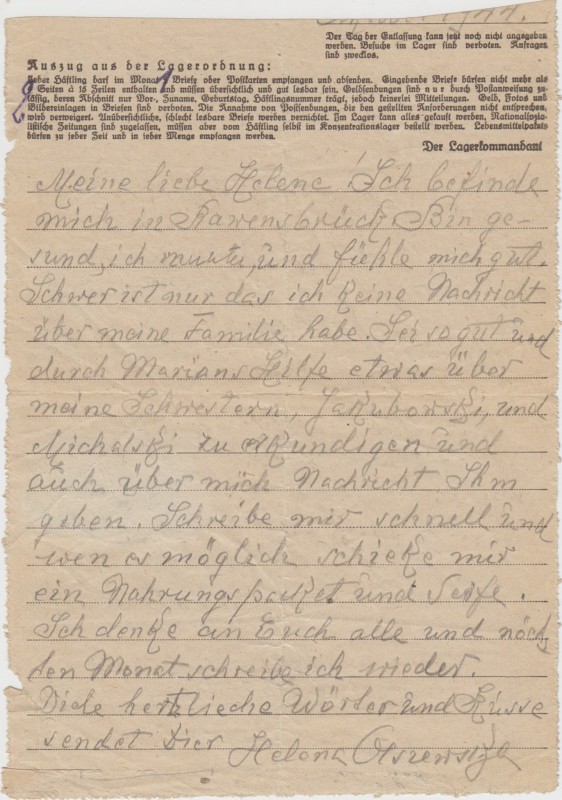 1944.
Der Tag der Entlassung kann jetzt noch nicht angegeben
werden. Besuche im Lager sind verboten. Anfragen
sind zwecklos.
Auszug aus der Lagerordnung:
Jeder Häftling darf im Monat 1 Briefe oder Postkarten empfangen und absenden. Eingehende Briefe dürfen nicht mehr als
Seiten à 15 Zeilen enthalten und müssen übersichtlich und gut lesbar sein. Geldsendungen sind nur durch Postanweisung zu-
lässig, deren Abschnitt nur Vor-, Zuname, Geburtstag, Häftlingsnummer trägt, jedoch keinerlei Mitteilungen. Geld, Fotos und
Bildereinlagen in Briefen sind verboten. Die Annahme von Postsendungen, die den gestellten Anforderungen nicht entsprechen,
wird verweigert. Unübersichtliche, schlecht lesbare Briefe werden vernichtet. Im Lager kann alles gekauft werden. Nationalsozia-
listische Zeitungen sind zugelassen, müssen aber vom Häftling selbst im Konzentrationslager bestellt werden. Lebensmittelpakete
dürfen zu jeder Zeit und in jeder Menge empfangen werden.
Der Lagerkommandant
Meine liebe Helene! Ich befinde
mich in Rawensbrück Bin ge-
sund, ich und fiehle mich gut.
Schwer ist nur das ich keine Nachricht
über meine Familie habe. Sei so gut und
durch Marians Hilfe etwas über
meine Schwestern, Jakubowski, und
Michalski zu erkundigen und
auch über mich Nachricht Ihm
geben. Schreibe mir schnell und
wen es möglich schieke mir
ein Nahrungspacket und Seife.
Ich denke an Euch alle und näch-
sten Monat schreibe ich wieder.
Viele hertzlieche Wörter und Küsse
sendet Dier Helena